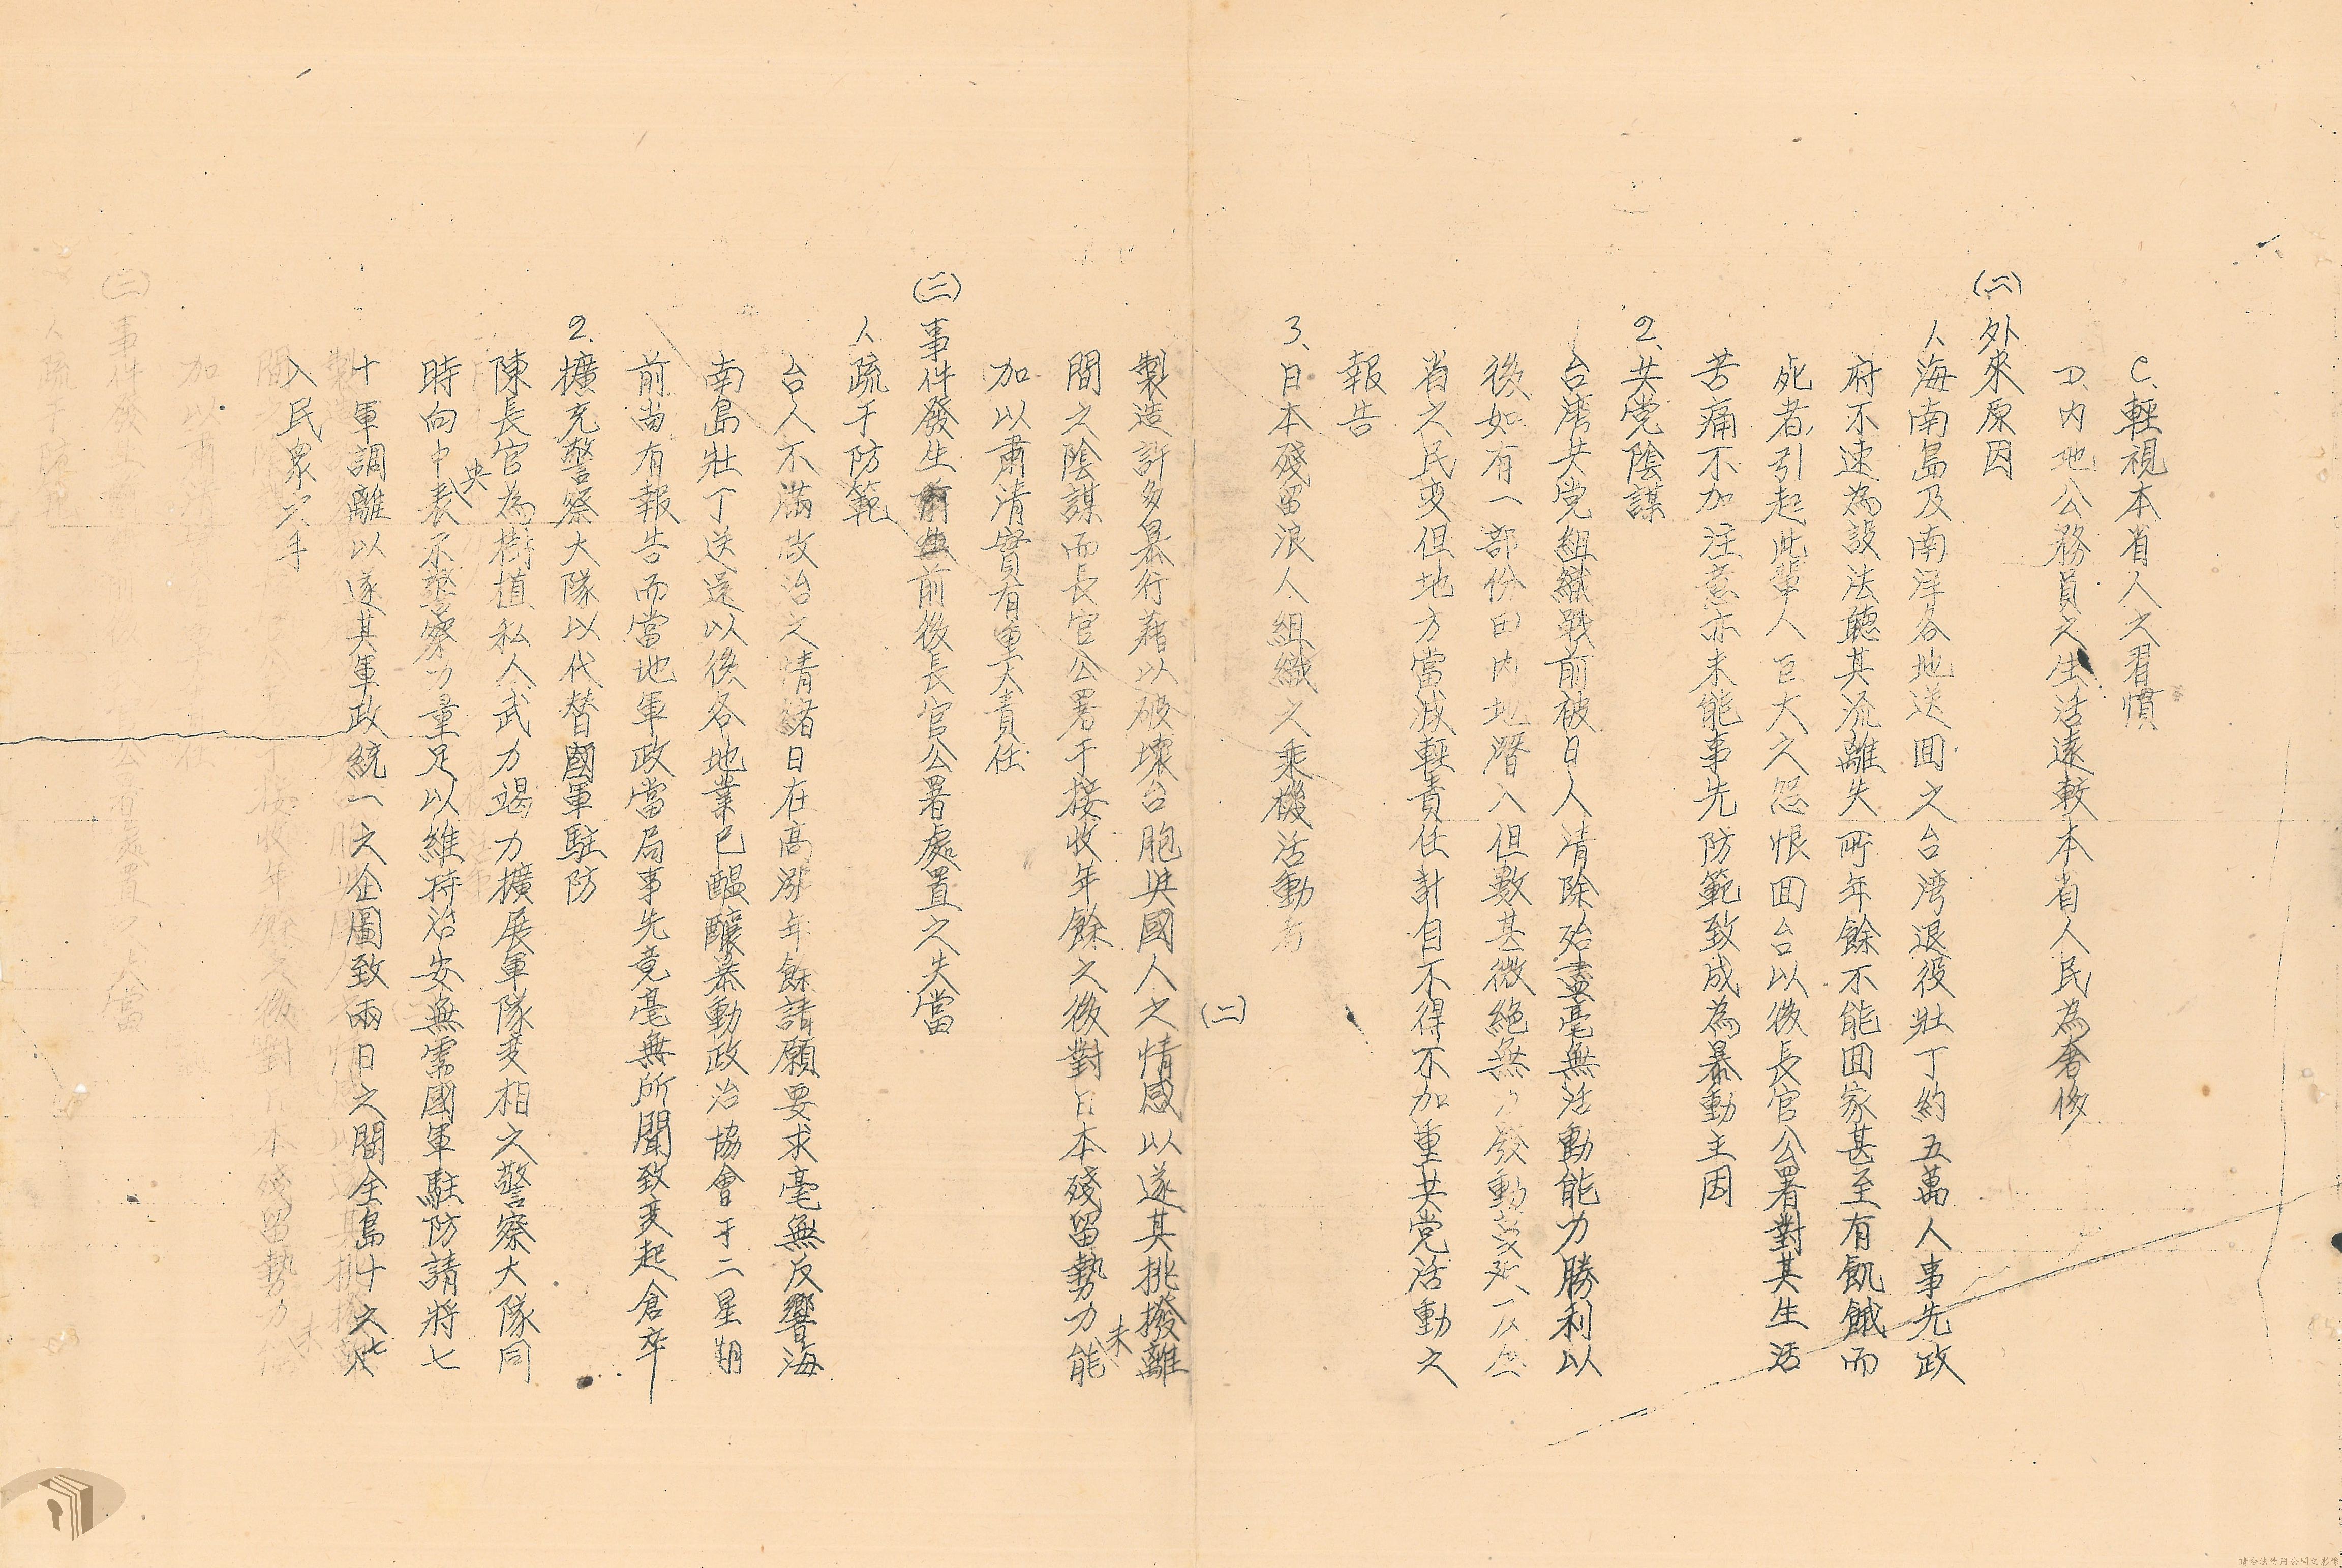 C、輕視本省人之習慣
D、內地公務員之生活遠較本省人民為奢侈
(二)外來原因
1、海南島及南洋各地送囬之台湾退役壯丁約五萬人事先政
府不速為設法聽其流離失所年餘不能囬家甚至有飢餓而
死者引起此輩人巨大之怨恨囬台以後長官公署對其生活
苦痛不加注意亦未能事先防範致成為暴動主因
2、共党陰謀
台湾共党組織戰前被日人清除殆盡毫無活動能力勝利以
後如有一部份由內地潛入但數甚微絕無力發動
省之民变但地方當減輕責任計自不得不加重共党活動之
報告
3、日本殘留浪人組織之乘機活動者
(二)
製造許多暴行藉以破壞台胞與國人之情感以遂其挑撥離
間之陰謀而長官公署于接收年餘之後對日本殘留勢力未能
加以肅清實有重大責任
(三)事件發生前後長官公署處置之失當
1、疏于防範
台人不滿政治之情緒日在高漲年餘請願要求毫無反響海
南島壯丁送還以後各地業已醞釀暴動政治協會于二星期
前尚有報告而當地軍政當局事先竟毫無所聞致变起倉卒
2、擴充警察大隊以代替國軍駐防
陳長官為樹植私人武力竭力擴展軍隊变相之警察大隊同
時向中央表示警察力量足以維持治安無需國軍駐防請將七
十軍調離以遂其軍政統一之企圖致兩日之間全島十之七八
入民眾之手
請合法使用公開之影像